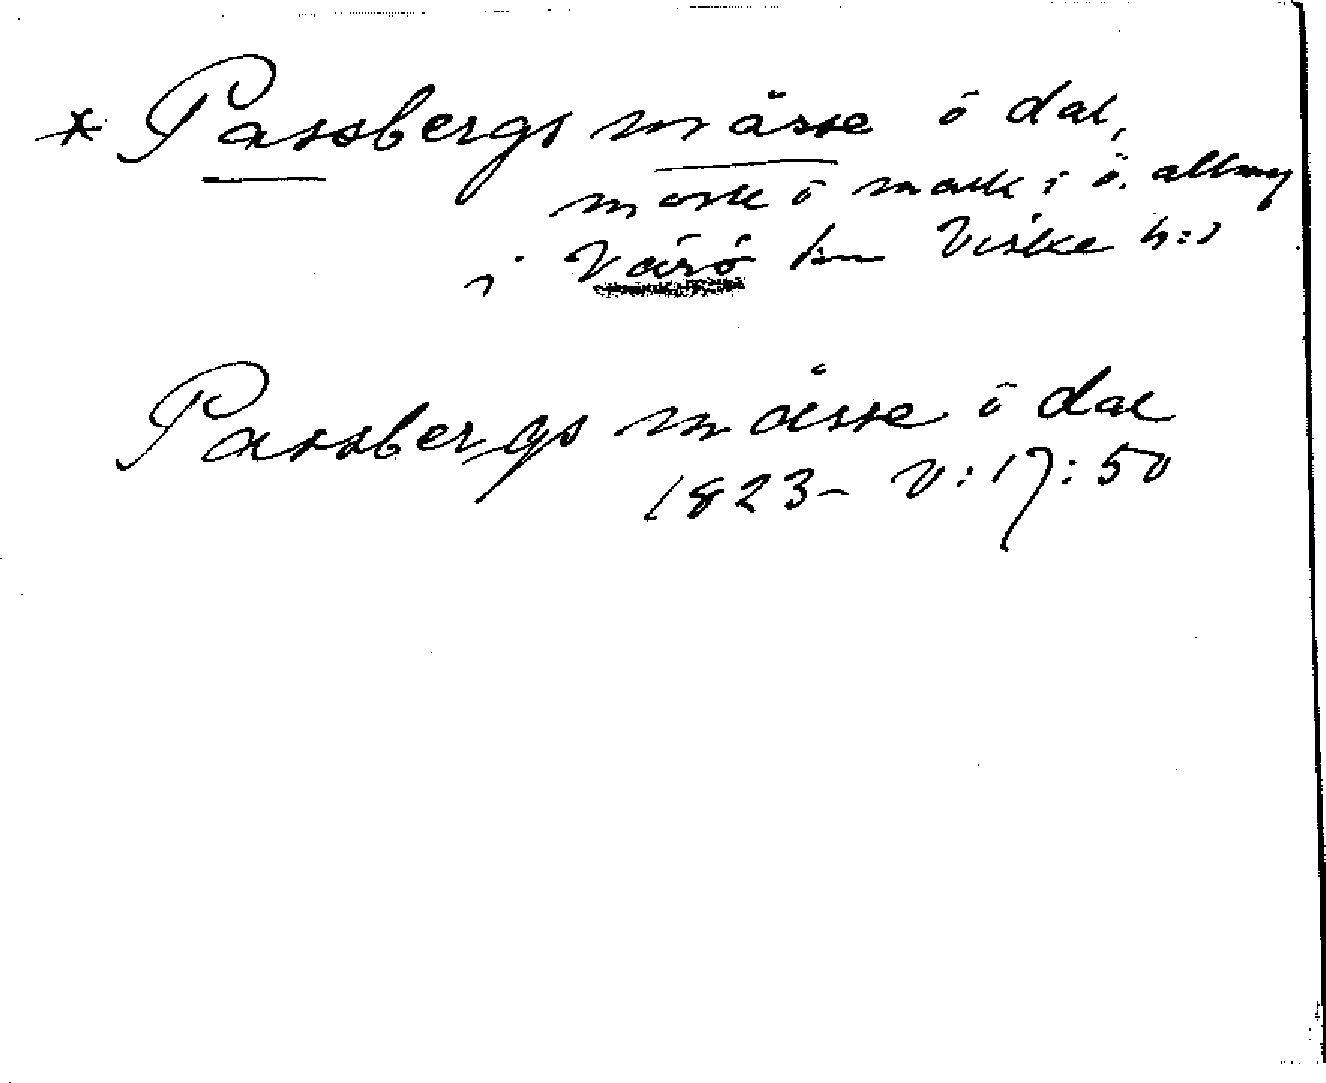 * Passbergs måsse o dal,
mosse o mark i ö. allmg
i Värö sn Viske h:d
Passbergs måsse o dal
1823 - V:17:50